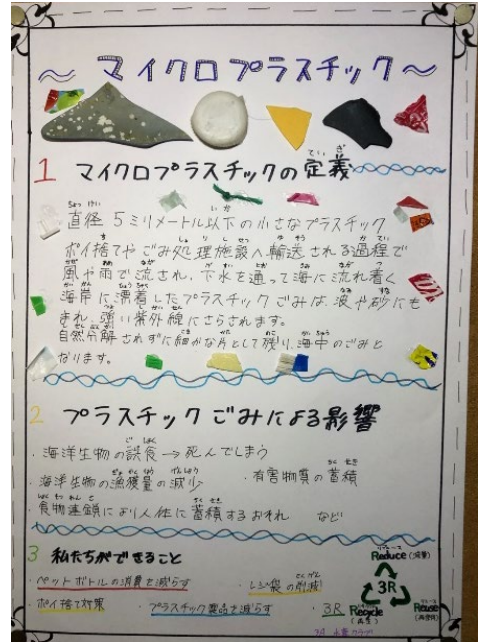 ～マイクロプラスチック～
1 マイクロプラスチックの定義
ていぎ
直径 5ミリメートル以下の小さなプラスチック
ポイ捨てやごみ処理施設へ輸送される過程で
風や雨で流され、下水を通って海に流れ着く
海岸に漂着したプラスチックごみは、波や砂にも
まれ、強い紫外線にさらされます。
自然分解されずに細かな片として残り、海中のごみと
なります。
2 プラスチックごみによる影響
・海洋生物の誤食→死んでしまう
・海洋生物の漁獲量の減少 ・有害物質の蓄積
・食物連鎖により人体に蓄積するおそれ など
3 私たちができること
・ペットボトルの消費を減らす ・レジ袋の削減
・ポイ捨て対策 ・プラスチック製品を減らす ・3R
Reduce(減量)
3R
Recycle
(再生)
Reuse
(再使用)